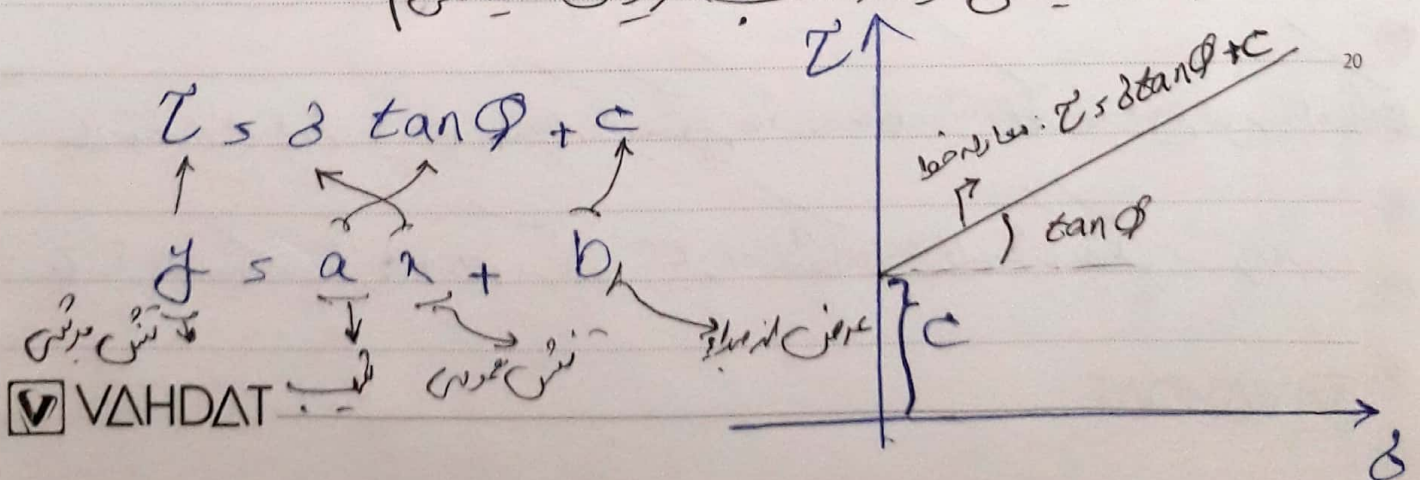 τ = σ tan φ + c
y = a x + b
تنش برشی
شیب
تنش عمودی
عرض از مبدا
VAHDAT
τ
معادله خط: τ = σ tan φ + c
20
tan φ
c
σ